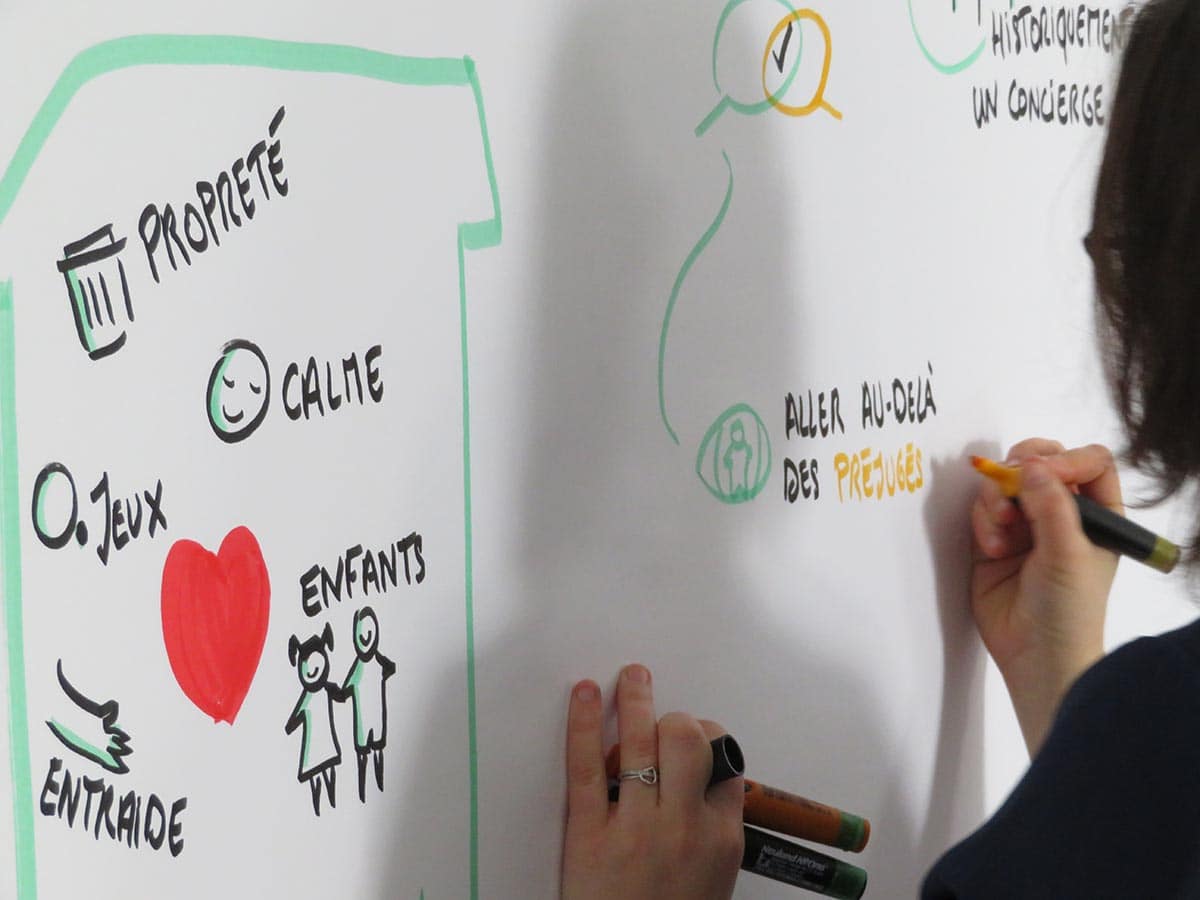 PROPRETÉ
CALME
JEUX
ENFANTS
ENTRAIDE
HISTORIQUEMENT
UN CONCIERGE
ALLER AU-DELÀ
DES PRÉJUGÉS
Neuland